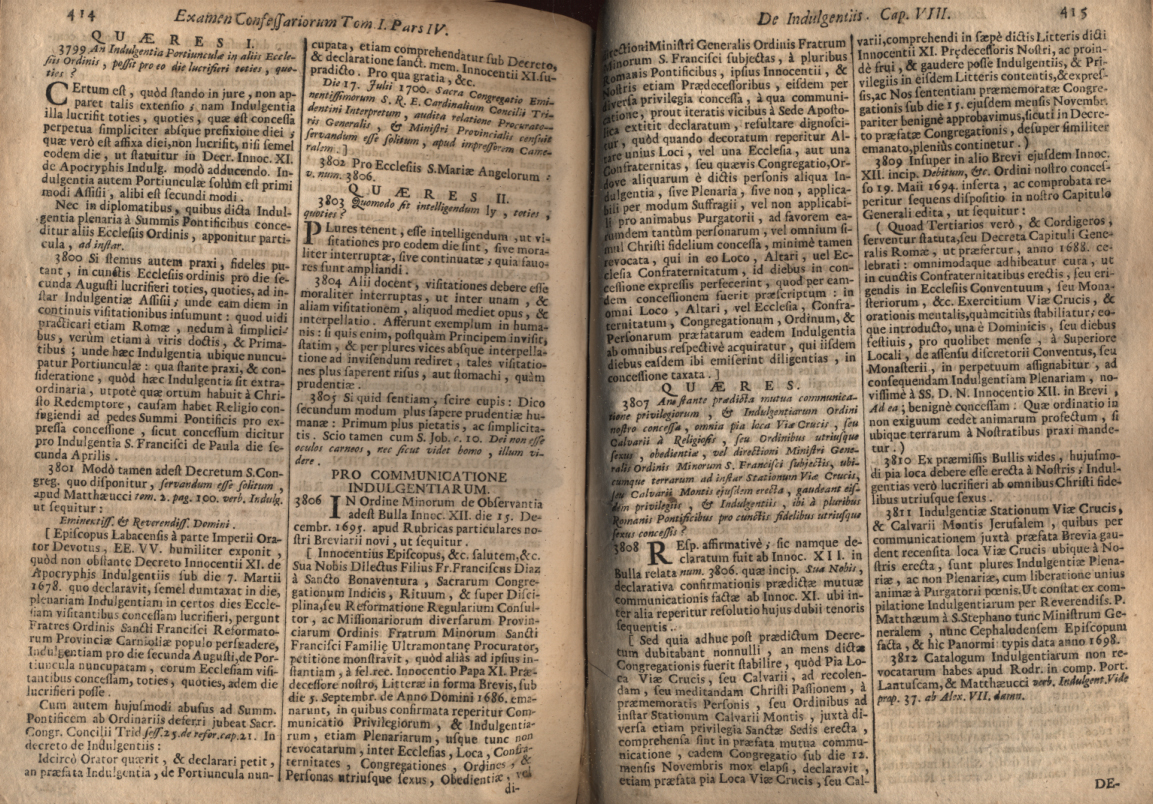 414
Examen Confessariorum Tom I. Pars IV.
QUÆRES I.
3799 An Indulgentia Portiunculæ in aliis Eccle-
siis Ordinis, possit pro eo die lucrifieri toties, quo-
ties?
CErtum est, quòd stando in jure, non ap-
paret talis extensio; nam Indulgentia
illa lucrifit toties, quoties, quæ est concessa
perpetua simpliciter absque prefixione diei;
quæ verò est affixa diei, non lucrifit, nisi semel
eodem die, ut statuitur in Decr. Innoc. XI.
de Apocryphis Indulg. modò adducendo. In-
dulgentia autem Portiunculæ solùm est primi
modi Assisii, alibi est secundi modi.
Nec in diplomatibus, quibus dicta Indul-
gentia plenaria à Summis Pontificibus conce-
ditur aliis Ecclesiis Ordinis, apponitur parti-
cula, ad instar.
3800 Si stemus autem praxi, fideles pu-
tant, in cunctis Ecclesiis ordinis pro die se-
cunda Augusti lucrifieri toties, quoties, ad in-
star Indulgentiæ Assisii; unde eam diem in
continuis visitationibus insumunt: quod uidi
practicari etiam Romæ, nedum à simplici-
bus, verùm etiam à viris doctis, & Prima-
tibus; unde hæc Indulgentia ubique nuncu-
patur Portiunculæ: qua stante praxi, & con-
sideratione, quòd hæc Indulgentia sit extra-
ordinaria, utpotè quæ ortum habuit à Chri-
sto Redemptore, causam habet Religio con-
fugiendi ad pedes Summi Pontificis pro ex-
pressa concessione, sicut concessum dicitur
pro Indulgentia S. Francisci de Paula die se-
cunda Aprilis.
3801 Modò tamen adest Decretum S. Con-
greg. quo disponitur, servandum esse solitum,
apud Matthæucci tom. 2. pag. 100. verb. Indulg.
ut sequitur:
Eminentiss. & Reverendiss. Domini.
[ Episcopus Labacensis à parte Imperii Ora-
tor Devotus, EE. VV. humiliter exponit,
quòd non obstante Decreto Innocentii XI. de
Apocryphis Indulgentiis sub die 7. Martii
1678. quo declaravit, semel dumtaxat in die,
plenariam Indulgentiam in certos dies Eccle-
siam visitantibus concessam lucrifieri, pergunt
Fratres Ordinis Sancti Francisci Reformato-
rum Provinciæ Carnioliæ populo persuadere,
Indulgentiam pro die secunda Augusti, de Por-
tiuncula nuncupatam, eorum Ecclesiam visi-
tantibus concessam, toties, quoties, adem die
lucrifieri posse.
Cum autem hujusmodi abusus ad Summ.
Pontificem ab Ordinariis deferri jubeat Sacr.
Congr. Concilii Trid sess. 25. de refor. cap. 21. In
decreto de Indulgentiis:
Idcircò Orator quærit, & declarari petit,
an præfata Indulgentia, de Portiuncula nun-
cupata, etiam comprehendatur sub Decreto,
& declaratione sanct. mem. Innocentii XI. su-
pradicto. Pro qua gratia, &c.
Die 17. Julii 1700. Sacra Congregatio Emi-
nentissimorum S. R. E. Cardinalium Concilii Tri-
dentini Interpretum, audita relatione Procurato-
ris Generalis, & Ministri Provincialis censuit
servandum esse solitum, apud impressorem Came-
ralem. ]
3802 Pro Ecclesiis S. Mariæ Angelorum:
v. num. 3806.
QUÆRES II.
3803 Quomodo sit intelligendum ly, toties,
quoties?
PLures tenent, esse intelligendum, ut vi-
sitationes pro eodem die sint, sive mora-
liter interruptæ, sive continuatæ; quia favo-
res sunt ampliandi.
3804 Alii docent, visitationes debere esse
moraliter interruptas, ut inter unam, &
aliam visitationem, aliquod mediet opus, &
interpellatio. Afferunt exemplum in huma-
nis: si quis enim, postquàm Principem invisit,
statim, & per plures vices absque interpella-
tione ad invisendum rediret, tales visitatio-
nes plus saperent risus, aut stomachi, quàm
prudentiæ.
3805 Si quid sentiam, scire cupis: Dico
secundum modum plus sapere prudentiæ hu-
manæ: Primum plus pietatis, ac simplicita-
tis. Scio tamen cum S. Job. c. 10. Dei non esse
oculos carneos, nec sicut videt homo, illum vi-
dere.
PRO COMMUNICATIONE
INDULGENTIARUM.
3806 IN Ordine Minorum de Observantia
adest Bulla Innoc. XII. die 15. De-
cembr. 1695. apud Rubricas particulares no-
stri Breviarii novi, ut sequitur.
[ Innocentius Episcopus, &c. salutem, &c.
Sua Nobis Dilectus Filius Fr. Franciscus Diaz
à Sancto Bonaventura, Sacrarum Congre-
gationum Indicis, Rituum, & super Disci-
plina, seu Reformatione Regularium Consul-
tor, ac Missionariorum diversarum Provin-
ciarum Ordinis Fratrum Minorum Sancti
Francisci Familiæ Ultramontanæ Procurator,
petitione monstravit, quòd aliàs ad ipsius in-
stantiam, à fel. rec. Innocentio Papa XI. Præ-
decessore nostro, Litteræ in forma Brevis, sub
die 5. Septemb. de Anno Domini 1686. ema-
narunt, in quibus confirmata reperitur Com-
municatio Privilegiorum, & Indulgentia-
rum, etiam Plenariarum, usque tunc non
revocatarum, inter Ecclesias, Loca, Confra-
ternitates, Congregationes, Ordines, &
Personas utriusque sexus, Obedientiæ, vel
di-
De Indulgentiis. Cap. VIII.
415
directioni Ministri Generalis Ordinis Fratrum
Minorum S. Francisci subjectas, à pluribus
Romanis Pontificibus, ipsius Innocentii, &
Nostris etiam Prædecessoribus, eisdem per
diversa privilegia concessa, à qua communi-
catione, prout iteratis vicibus à Sede Aposto-
lica extitit declaratum, resultare dignosci-
tur, quòd quando decoratum reperitur Al-
tare unius Loci, vel una Ecclesia, aut una
Confraternitas, seu quævis Congregatio, Or-
dove aliquarum è dictis personis aliqua In-
dulgentia, sive Plenaria, sive non, applica-
bili per modum Suffragii, vel non applicabi-
li pro animabus Purgatorii, ad favorem ea-
rumdem tantùm personarum, vel omnium si-
mul Christi fidelium concessa, minimè tamen
revocata, qui in eo Loco, Altari, uel Ec-
clesia Confraternitatum, id diebus in con-
cessione expressis persecerint, quod per eam-
dem concessionem fuerit præscriptum: in
omni Loco, Altari, vel Ecclesia, Confra-
ternitatum, Congregationum, Ordinum, &
Personarum præfatarum eadem Indulgentia
ab omnibus respectivè acquiratur, qui iisdem
diebus easdem ibi emiserint diligentias, in
concessione taxata. ]
QUÆRES.
3807 An stante prædicta mutua communica-
tione privilegiorum, & Indulgentiarum Ordini
nostro concessa, omnia pia loca Viæ Crucis, seu
Calvarii à Religiosis, seu Ordinibus utriusque
sexus, obedientiæ, vel directioni Ministri Gene-
ralis Ordinis Minorum S. Francisci subjectis, ubi-
cumque terrarum ad instar Stationum Viæ Crucis,
seu Calvarii Montis ejusdem erecta, gaudeant eis-
dem privilegiis, & Indulgentiis, ibi à pluribus
Romanis Pontificibus pro cunctis fidelibus utriusque
sexus concessis?
3808 REsp. affirmativè; sic namque de-
claratum fuit ab Innoc. XII. in
Bulla relata num. 3806. quæ incip. Sua Nobis,
declarativa confirmationis prædictæ mutuæ
communicationis factæ ab Innoc. XI. ubi in-
ter alia reperitur resolutio hujus dubii tenoris
sequentis.
[ Sed quia adhuc post prædictum Decre-
tum dubitabant nonnulli, an mens dictæ
Congregationis fuerit stabilire, quòd Pia Lo-
ca Viæ Crucis, seu Calvarii, ad recolen-
dam, seu meditandam Christi Passionem, à
præmemoratis Personis, seu Ordinibus ad
instar Stationum Calvarii Montis, juxtà di-
versa etiam privilegia Sanctæ Sedis erecta,
comprehensa sint in præfata mutua commu-
nicatione, eadem Congregatio sub die 12.
mensis Novembris mox elapsi, declaravit,
etiam præfata pia Loca Viæ Crucis, seu Cal-
varii, comprehendi in sæpè dictis Litteris dicti
Innocentii XI. Prędecessoris Nostri, ac proin-
dè frui, & gaudere posse Indulgentiis, & Pri-
vilegiis in eisdem Litteris contentis, & expres-
sis, ac Nos sententiam præmemoratæ Congre-
gationis sub die 15. ejusdem mensis Novembr.
pariter benignè approbavimus, sicuti in Decre-
to præfatæ Congregationis, desuper similiter
emanato, pleniùs continetur. )
3809 Insuper in alio Brevi ejusdem Innoc.
XII. incip. Debitum, &c. Ordini nostro conces-
so 19. Maii 1694. inserta, ac comprobata re-
peritur sequens dispositio in nostro Capitulo
Generali edita, ut sequitur:
( Quod Tertiarios verò, & Cordigeros,
serventur statuta, seu Decreta Capituli Gene-
ralis Romæ, ut præfertur, anno 1688. ce-
lebrati: omnimodaque adhibeatur cura, ut
in cunctis Confraternitatibus erectis, seu eri-
gendis in Ecclesiis Conventuum, seu Mona-
steriorum, &c. Exercitium Viæ Crucis, &
orationis mentalis, quàmcitiùs stabiliatur; eo-
que introducto, una è Dominicis, seu diebus
festiuis, pro quolibet mense, à Superiore
Locali, de assensu discretorii Conventus, seu
Monasterii, in perpetuum assignabitur, ad
consequendam Indulgentiam Plenariam, no-
vissimè à SS. D. N. Innocentio XII. in Brevi,
Ad ea; benignè concessam: Quæ ordinatio in
non exiguum cedet animarum profectum, si
ubique terrarum à Nostratibus praxi mande-
tur. )
3810 Ex præmissis Bullis vides, hujusmo-
di pia loca debere esse erecta à Nostris; Indul-
gentias verò lucrifieri ab omnibus Christi fide-
libus utriusque sexus.
3811 Indulgentiæ Stationum Viæ Crucis,
& Calvarii Montis Jerusalem, quibus per
communicationem juxtà præfata Brevia gau-
dent recensita loca Viæ Crucis ubique à No-
stris erecta, sunt plures Indulgentiæ Plena-
riæ, ac non Plenariæ, cum liberatione unius
animæ à Purgatorii pœnis. Ut constat ex com-
pilatione Indulgentiarum per Reverendiss. P.
Matthæum à S. Stephano tunc Ministrum Ge-
neralem, nunc Cephaludensem Episcopum
facta, & hic Panormi typis data anno 1698.
3812 Catalogum Indulgentiarum non re-
vocatarum habes apud Rodr. in comp. Port.
Lantuscam, & Matthæucci verb. Indulgent. Vide
prop. 37. ab Alex. VII. damn.
DE-